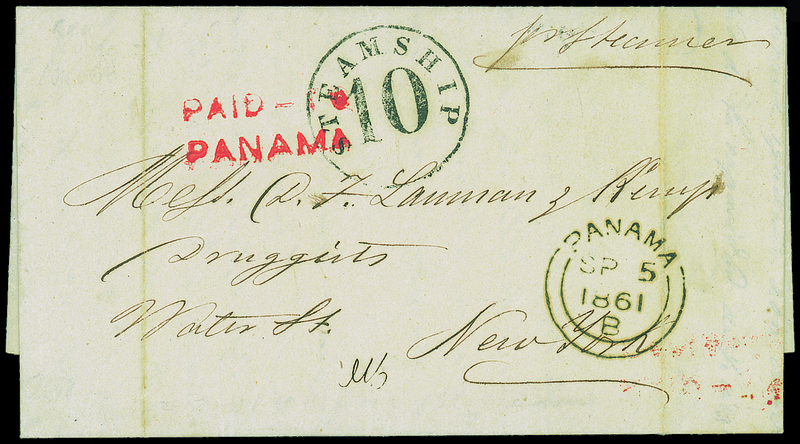 pr Steamer
STEAMSHIP
10
PAID-
PANAMA
Mess. D. T. Lanman & Kemp
Druggists
Water St.
New York
PANAMA
SP 5
1861
B